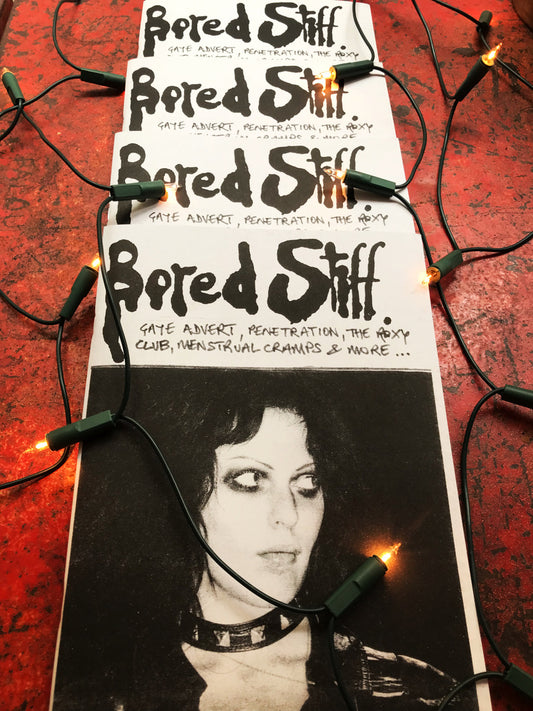 Bored Stiff.
GAYE ADVERT, PENETRATION, THE ROXY
Bored Stiff.
GAYE ADVERT, PENETRATION, THE ROXY
Bored Stiff.
GAYE ADVERT, PENETRATION, THE ROXY
Bored Stiff.
GAYE ADVERT, PENETRATION, THE ROXY
CLUB, MENSTRUAL CRAMPS & MORE ...